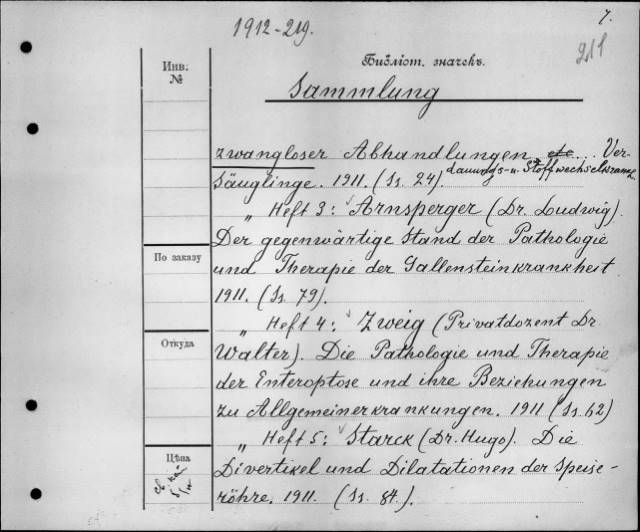 7.
1912-219.
211
Инв.
№
Библіот. значекъ.
Sammlung
zwangloser Abhandlungen etc... Ver-
dauungs-u. Stoffwechselkrank.
Säuglinge. 1911. (Ss. 24).
„ Heft 3: Arnsperger (Dr. Loudwig).
Der gegenwärtige Stand der Pathologie
По заказу
und Therapie der Gallensteinkrankheit
1911. (Ss. 79).
„ Heft 4: Zweig (Privatdozent Dr
Откуда
Walter). Die Pathologie und Therapie
der Enteroptose und ihre Beziehungen
zu Allgemeinerkrankungen. 1911 (Ss. 62)
„ Heft 5: Starck (Dr. Hugo). Die
Цѣна
Divertikel und Dilatationen der Speise-
röhre. 1911. (Ss. 84.)